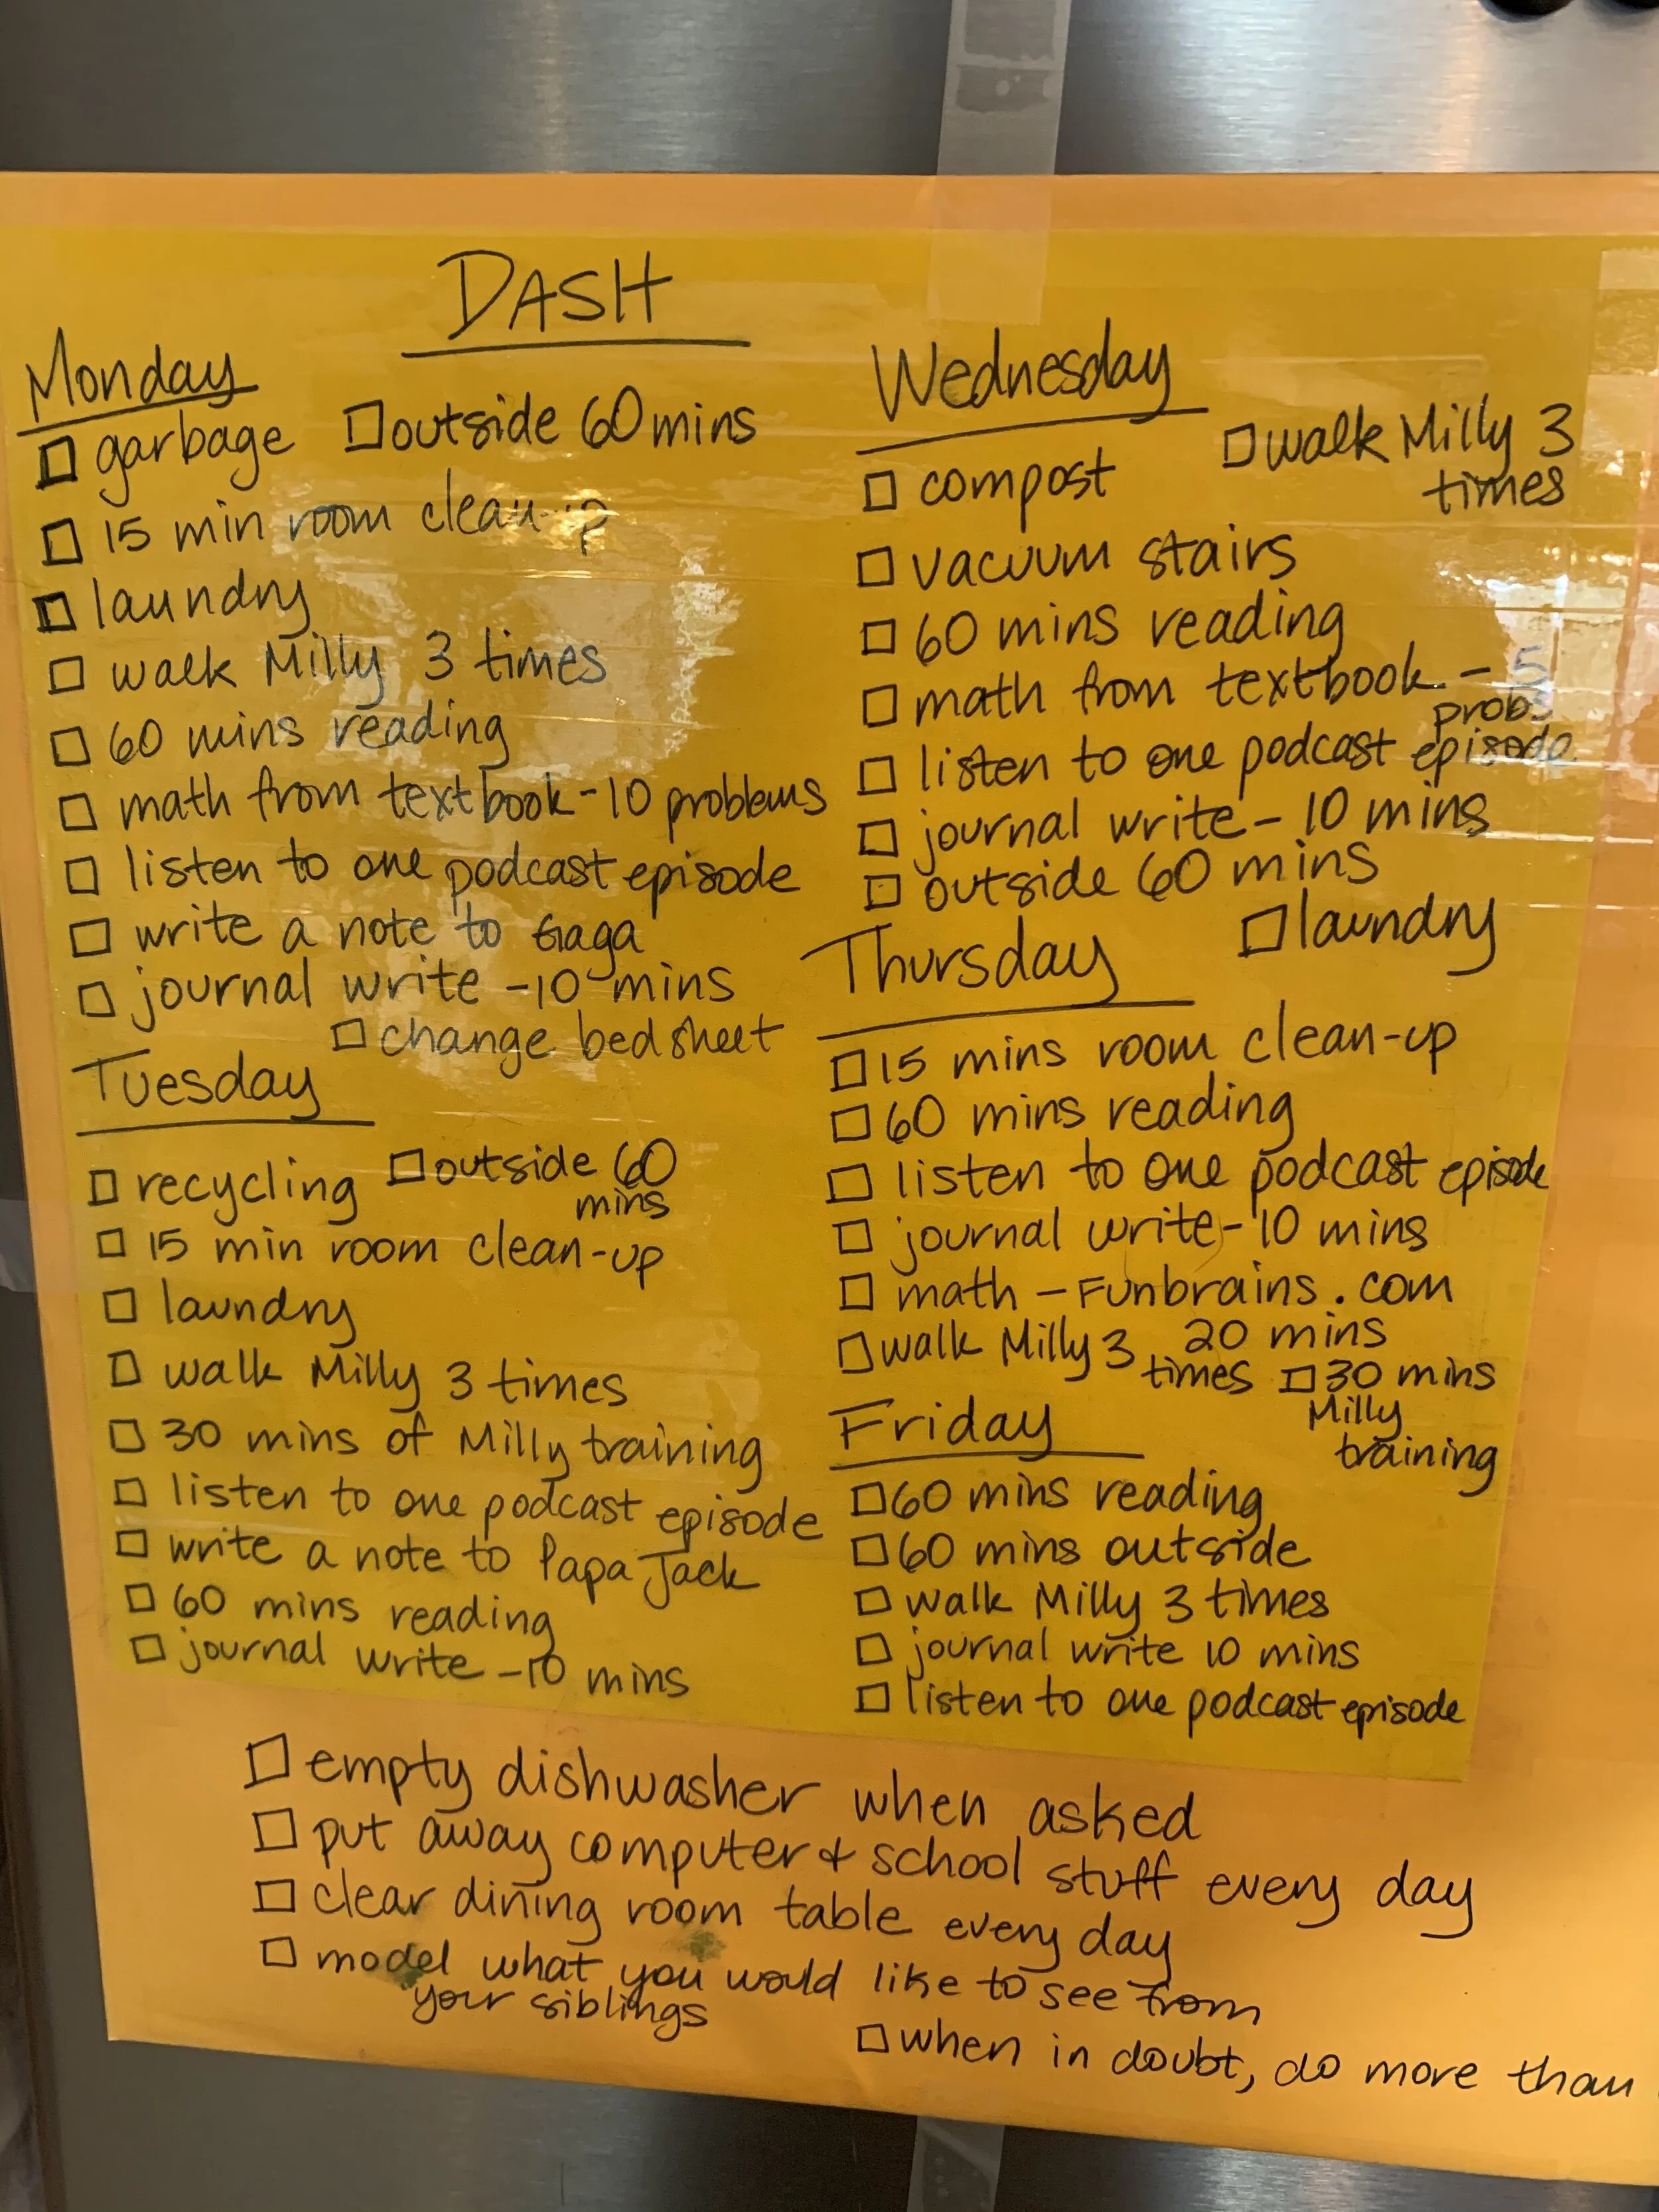 DASH
Monday
garbage
outside 60 mins
15 min room clean-up
laundry
walk Milly 3 times
60 mins reading
math from textbook - 10 problems
listen to one podcast episode
write a note to Gaga
journal write - 10 mins
change bed sheet
Tuesday
recycling
outside 60
mins
15 min room clean-up
laundry
walk Milly 3 times
30 mins of Milly training
listen to one podcast episode
write a note to Papa Jack
60 mins reading
journal write - 10 mins
Wednesday
compost
walk Milly 3
times
vacuum stairs
60 mins reading
math from textbook - 5
probs
listen to one podcast episode
journal write - 10 mins
outside 60 mins
laundry
Thursday
15 mins room clean-up
60 mins reading
listen to one podcast episode
journal write - 10 mins
math - Funbrains.com
20 mins
walk Milly 3
times
30 mins
Milly
training
Friday
60 mins reading
60 mins outside
walk Milly 3 times
journal write 10 mins
listen to one podcast episode
empty dishwasher when asked
put away computer & school stuff every day
clear dining room table every day
model what you would like to see from
your siblings
when in doubt, do more than